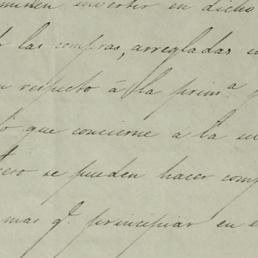 invertir en dicho
las compras, arregladas
respecto á la prim.ª
que concierne a la
se pueden hacer
mas q.e principiar en